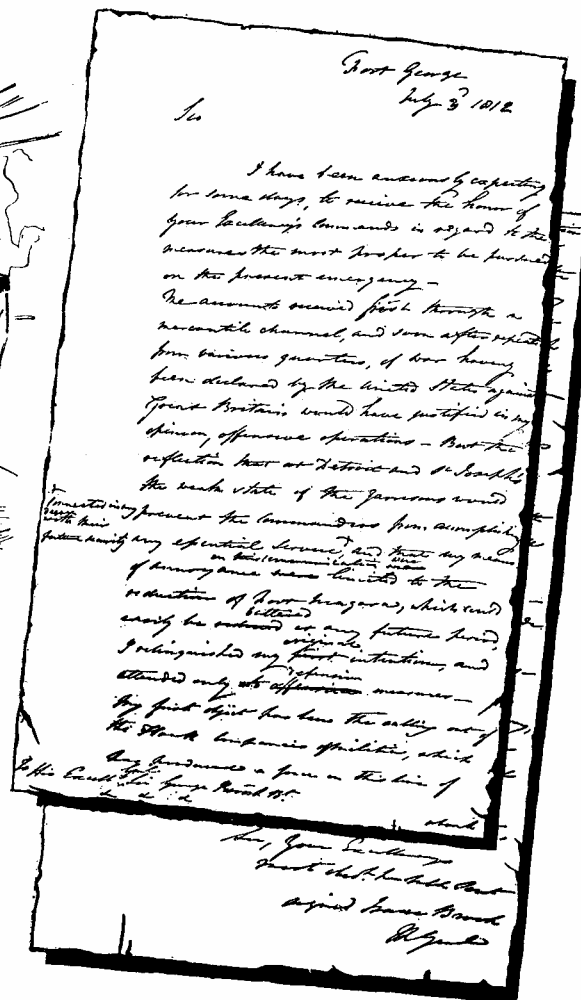 Fort George
July 3d 1812
Sir
I have been anxiously expecting
for some days, to receive the honor of
your Excellency's Commands in regard to the
measures the most proper to be pursued
on the present emergency —
The accounts received first through a
mercantile channel, and soon after repeated
from various quarters, of war having
been declared by the United States against
Great Britain would have justified in my
opinion, offensive operations — But the
reflection that at Detroit and St Joseph's
the weak state of the Garrisons would
prevent the Commanders from accomplishing
connected in any
with their
future security
any essential service, and that my means
on this communication were
of annoyance were limited to the
reduction of Fort Niagara, which could
battered
easily be at any future period,
original
I relinquished my first intentions, and
defensive
attended only to offensive measures —
My first object has been the calling out of
the Flank Companies of militia, which
has produced a force on this line of
about
To His Excell Sir George Prevost Bt
&c &c &c
Sir, Your Excellency's
most obedt humble Servt
signed Isaac Brock